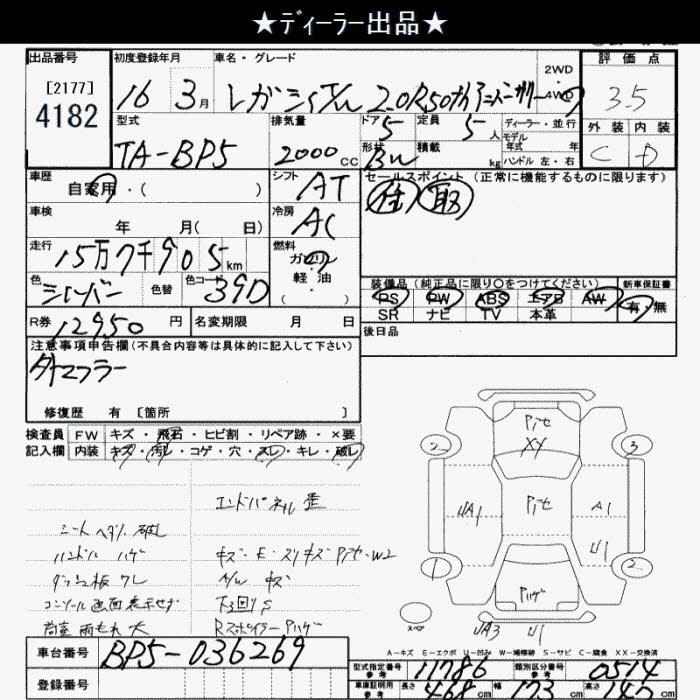 ★ディーラー出品★
出品番号 初度登録年月 車名・グレード 2WD・4WD 評価点
[2177]
4182
16 3月 レガシィワゴン 2.0R50thアニバーサリー 3.5
型式 排気量 ドア 定員 ディーラー・並行 外装 内装
TA-BP5 2000cc 5 5人 モデル年式 年 C D
形状 BW 積載 kg ハンドル 左・右
車歴 自家用・( ) シフト AT セールスポイント (正常に機能するものに限ります)
車検 年 月( 日) 冷房 AC
走行 15万7千905km 燃料 ガソリン・軽油
色 シルバー 色替 色コード 39D
装備品(純正品に限り○をつけてください) 新車保証書
PS PW ABS エアB AW 有・無
SR ナビ TV 本革
R券 12950円 名変期限 月 日 後日品
注意事項申告欄(不具合内容等は具体的に記入して下さい)
外マフラー
修復歴 有 [箇所 ]
検査員 FW キズ・飛石・ヒビ割・リペア跡・×要
記入欄 内装 キズ・汚レ・コゲ・穴・スレ・キレ・破レ
エンドパネル歪
シートヘタリ、破レ
ハンドル ハゲ キズ・E・スリキズ W2
ダッシュ板 ワレ A/W キズ
コンソール画面表示せず 下回りS
荷室 雨もれ 大 Rスポイラー Pハゲ
XY
2 3
UA1 A1
U1
1 2
Pハゲ
スペア UA3 U1
A-キズ E-エクボ U-凹み W-補修跡 S-サビ C-腐食 XX-交換済
車台番号 BP5-036269
型式指定番号 参考 11786 類別区分番号 参考 0514
登録番号 車庫証明用 参考 長さ 468cm 幅 173cm 高さ cm